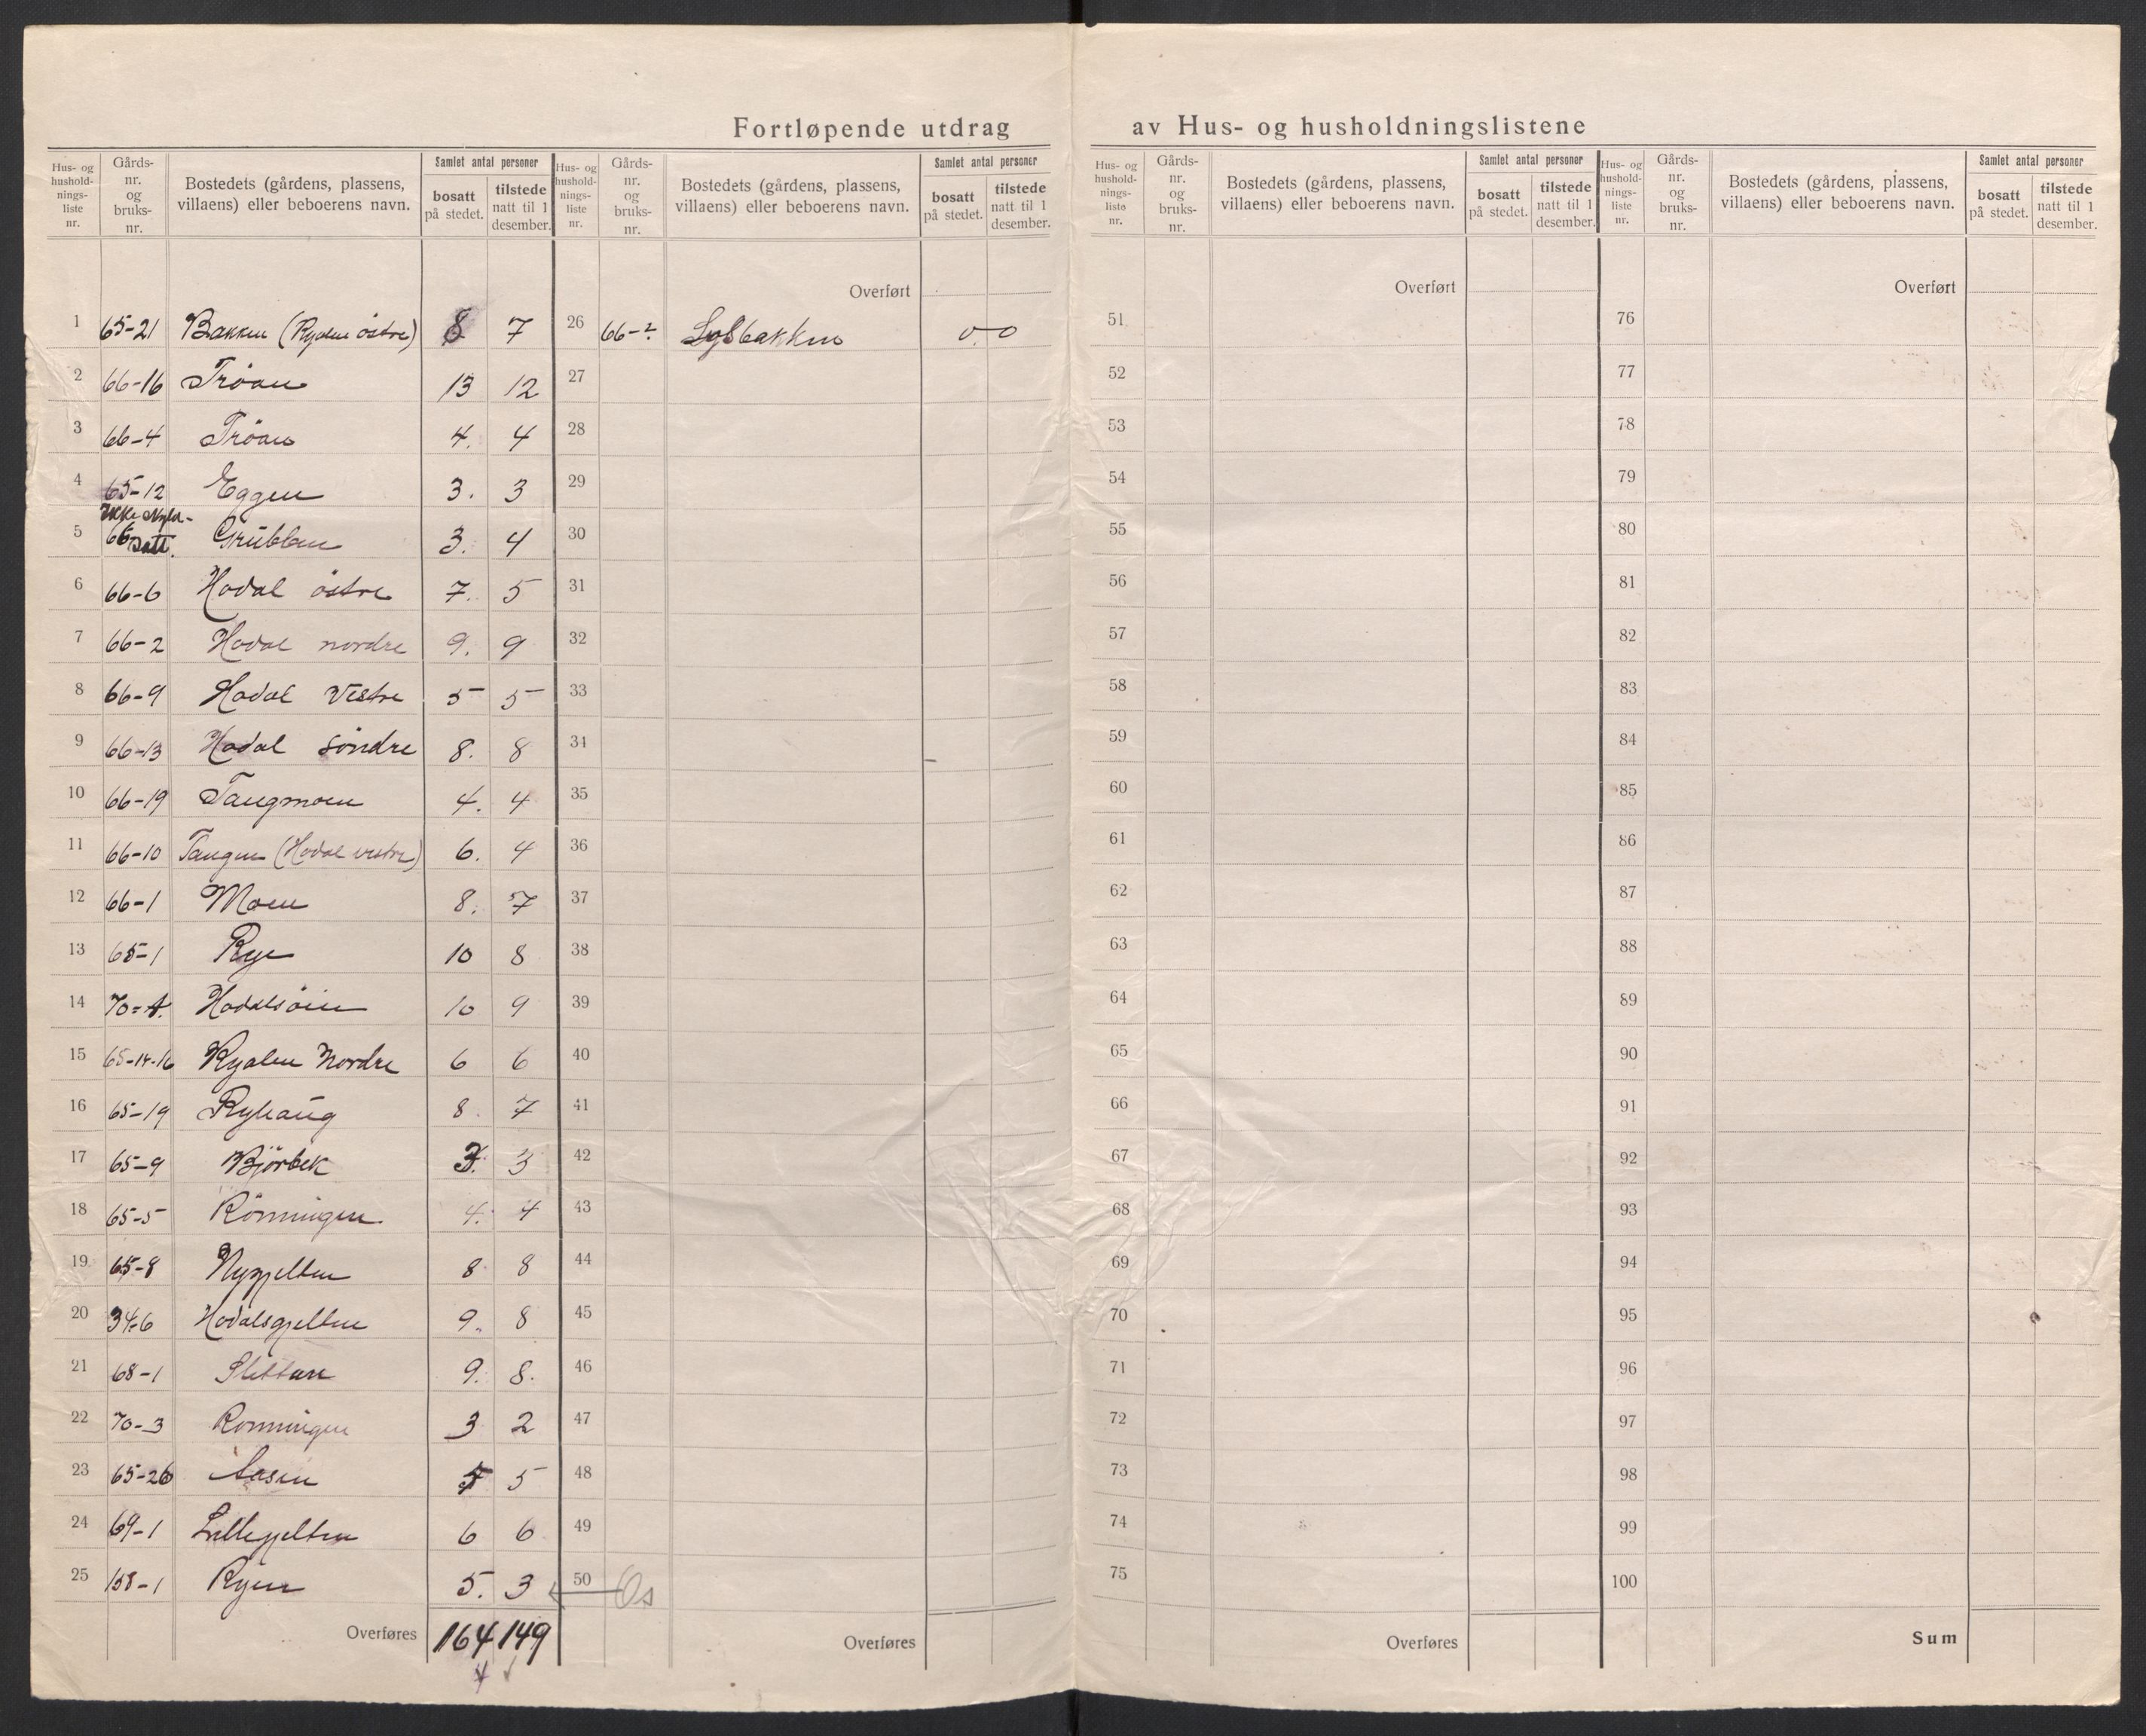 Fortløpende utdrag av Hus- og husholdningslistene
Hus- og hushold-nings-liste nr. Gårds-nr. og bruks-nr. Bostedets (gårdens, plassens, villaens) eller beboerens navn. Samlet antal personer bosatt på stedet. tilstede natt til 1 desember.
Hus- og hushold-nings-liste nr. Gårds-nr. og bruks-nr. Bostedets (gårdens, plassens, villaens) eller beboerens navn. Samlet antal personer bosatt på stedet. tilstede natt til 1 desember.
Hus- og hushold-nings-liste nr. Gårds-nr. og bruks-nr. Bostedets (gårdens, plassens, villaens) eller beboerens navn. Samlet antal personer bosatt på stedet. tilstede natt til 1 desember.
Hus- og hushold-nings-liste nr. Gårds-nr. og bruks-nr. Bostedets (gårdens, plassens, villaens) eller beboerens navn. Samlet antal personer bosatt på stedet. tilstede natt til 1 desember.
Overført Overført Overført
1 65-21 Bakken (Ryalen östre) 8 7 26 66-? 0. 0 51 76
2 66-16 Tröan 13 12 27 52 77
3 66-4 Tröan 4. 4 28 53 78
4 65-12 Eggen 3. 3 29 54 79
Ikke skyld-
5 66 satt. Grübben 3. 4 30 55 80
6 66-6 Hodal östre 7. 5 31 56 81
7 66-2 Hodal nordre 9. 9 32 57 82
8 66-9 Hodal Vestre 5 5 33 58 83
9 66-13 Hodal söndre 8. 8 34 59 84
10 66-19 Tangmoen 4. 4 35 60 85
11 66-10 Tangen (Hodal vestre) 6. 4 36 61 86
12 66-1 Moen 8. 7 37 62 87
13 65-1 Rye 10 8 38 63 88
14 70- Hodalsöien 10 9 39 64 89
15 65-14-16 Ryalen Nordre 6 6 40 65 90
16 65-19 Ryhaüg 8. 7 41 66 91
17 65-9 Björbek 3. 3 42 67 92
18 65-5 Rönningen 4. 4 43 68 93
19 65-8 Nygjelten 8 8 44 69 94
20 34-6 Hodalsgjelten 9. 8 45 70 95
21 68-1 Sletten 9. 8. 46 71 96
22 70-3 Ronningen 3 2 47 72 97
23 65-26 Aasen 5 5 48 73 98
24 69-1 Lillegjelten 6 6 49 74 99
25 158-1 Ryen 5. 3 50 Os 75 100
Overføres 164 149 Overføres Overføres Sum